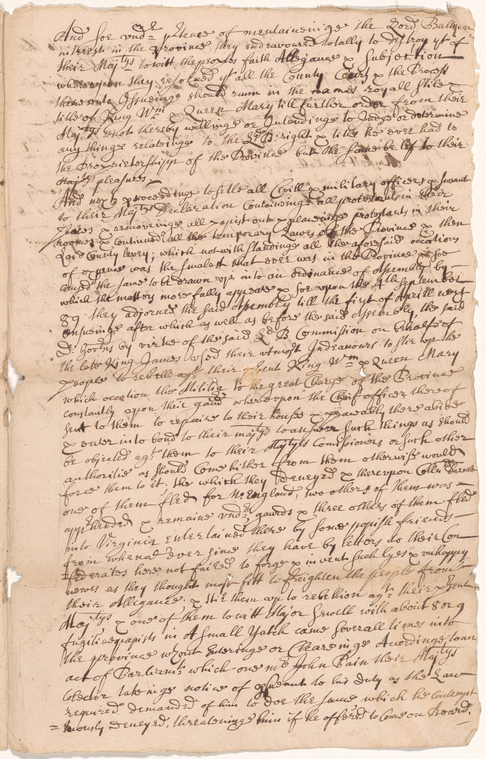 And soe und.r p.tence of mentaineinge the Lord Baltimores
interest in the Province they endeavoured totally to destroy y.t of
their Maj.tys to witt the peoples faith Allegiance & Subjection
whereupon they resolved y.t all the County Courts & the Process
there unto Issueinge should runn in the names royall Stile &
title of King W.m & Queen Mary till further order from their
Maj.tys & not thereby willinge or Intendinge to Judge or determine
any things relateinge to the L.d B: right & title hee ever had to
the Proprietershipp of the Province but the same be left to their
Maj.tys pleasures
And next proceedinge to settle all Civill & military officers pursuant
to their Maj.tys Declaration Containeinge all protestants in their
places & removeinge all papist out & placeinge protestants in their
roomes & Continued all the temporary Lawes of the Province & then
Laid County Levy, which notwithstandinge all the aforesaid occations
of expence was the smalest that ever was in the Province & soe
caused the same to be drawn up into an ordinance of Assembly by
which the matters more fully appeare & soe upon the 4th September
89 they adjorned the said Assembly till the first of Aprill next
ensueinge after which as well as before the said Assembly, the said
De. Gov.rns by virtue of the said L.d B Commission on behalfe of
the late King James used their utmost Indeavours to stir up the
people to rebell ag.t their p.sent King W.m & Queen Mary
which occation the Militia to the great Charge of the Province
constantly upon their gaurd whereupon the Chief officer thereof
sent to them to repaire to their houses & peaceably there abide
& enter into bond to their maj.tys to answer such things as should
be objected ag.t them to their Maj.tys Commissioners or such other
authorities as should Come hither from them otherwise would
force them to it, the which they denyed & thereupon Coll.n Darnall
one of them fled for N: England, two others of them was
app.rhended & remaine und.r gaurds & three others of them fled
into Virginia entertained there by some popish friends
from whence ever since they have by letters to their Con-
federates here not failed to forge & invent such lyes & unhappy
newes as they thought most fitt to freighten the people from
their Allegiance & stir them up to rebellion ag.t their p.sent
Maj.tys & one of them to witt Major Sewell with about 8 or 9
fugitive papists in A small Yatch came severall times into
the province w.thout Entringe or Cleareinge Acordinge to an
act of Parliam.t which one m.r John Pain their Maj.tys
Colector takeinge notice of pursuant to his duty as the Law
required demanded of him to doe the same which he contempt-
=uously denyed, threateninge him if he offered to Come on Board